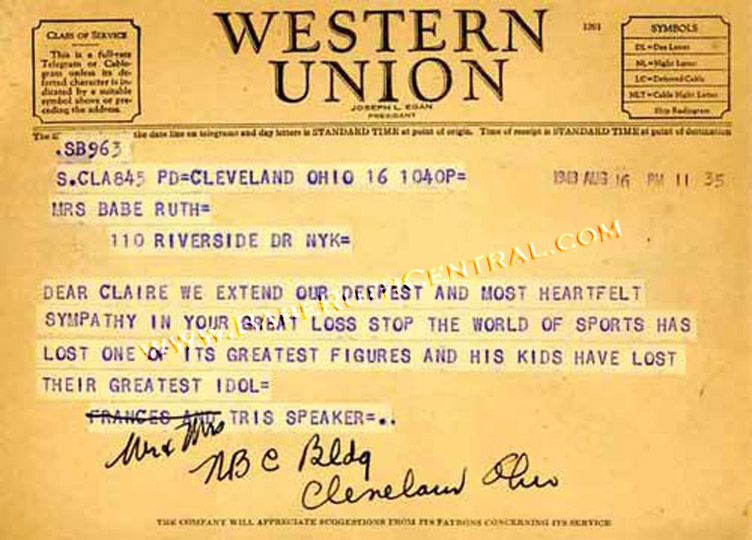 CLASS OF SERVICE
This is a full-rate
Telegram or Cable-
gram unless its de-
ferred character is in-
dicated by a suitable
symbol above or pre-
ceding the address.
WESTERN
UNION
JOSEPH L. EGAN
PRESIDENT
1201
SYMBOLS
DL=Day Letter
NL=Night Letter
LC=Deferred Cable
NLT=Cable Night Letter
Ship Radiogram
The the date line on telegrams and day letters is STANDARD TIME at point of origin. Time of receipt is STANDARD TIME at point of destination
.SB963
S.CLA845 PD=CLEVELAND OHIO 16 1040P=
AUG 16 PM 11 35
MRS BABE RUTH=
110 RIVERSIDE DR NYK=
DEAR CLAIRE WE EXTEND OUR DEEPEST AND MOST HEARTFELT
SYMPATHY IN YOUR GREAT LOSS STOP THE WORLD OF SPORTS HAS
LOST ONE OF ITS GREATEST FIGURES AND HIS KIDS HAVE LOST
THEIR GREATEST IDOL=
FRANCES AND TRIS SPEAKER=..
Mr & Mrs
NBC Bldg
Cleveland Ohio
THE COMPANY WILL APPRECIATE SUGGESTIONS FROM ITS PATRONS CONCERNING ITS SERVICE